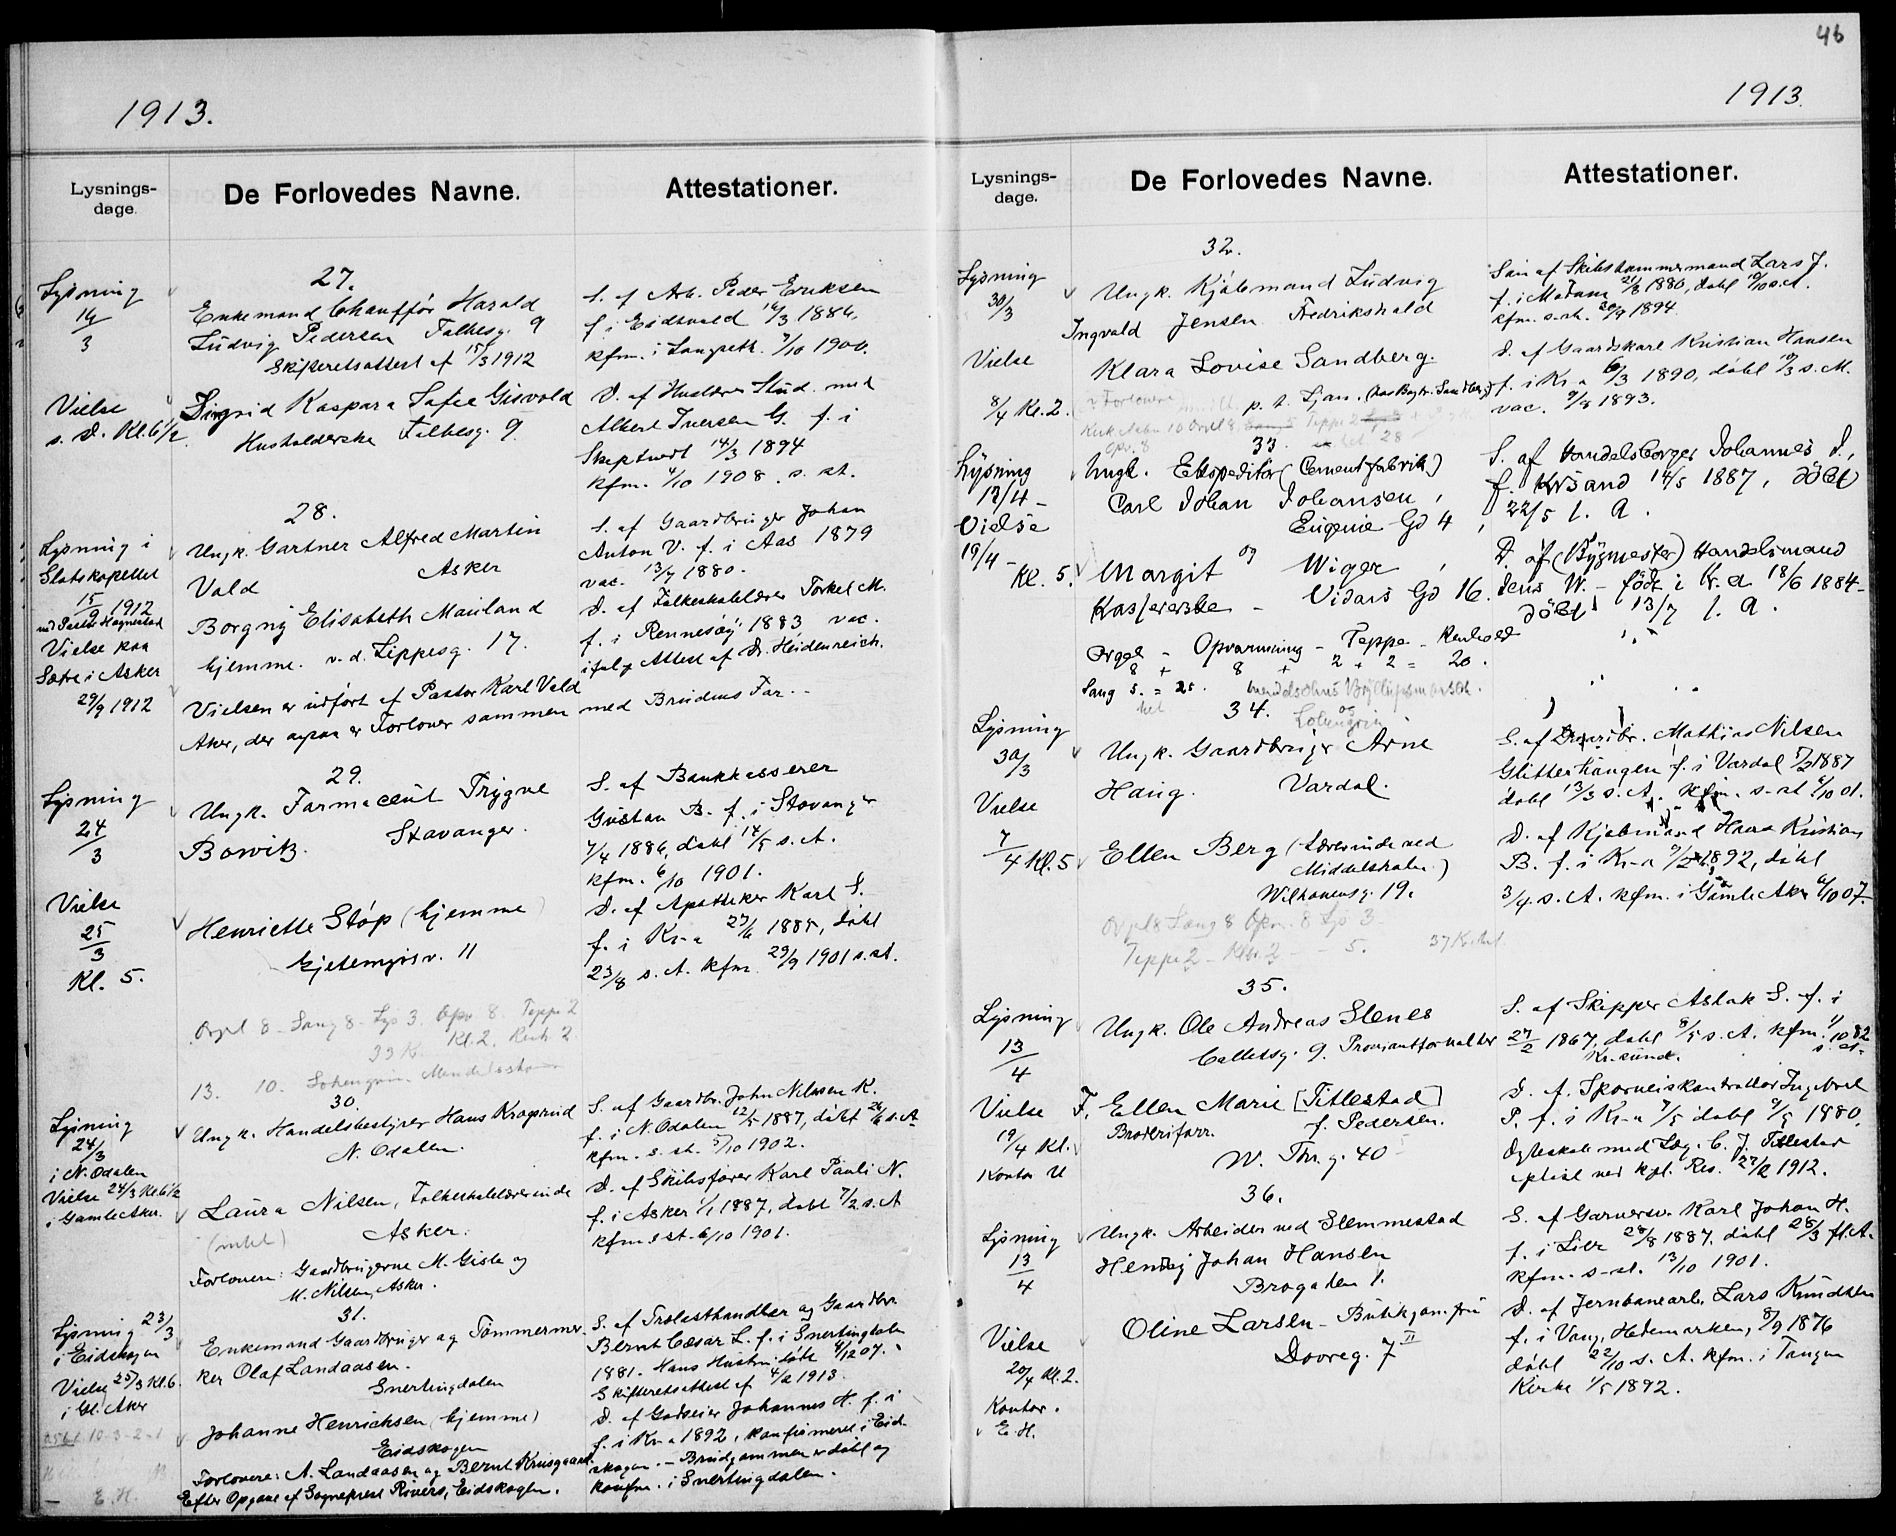 46
1913.
Lysnings-
dage.
De Forlovedes Navne.
Attestationer.
27.
Lysning
16/3
Enkemand Chauffør Harald
Ludvig Pedersen Falbesg. 9
Skifteretsattest af 15/3 1912
S. af Arb. Peder Eriksen
f. i Eidsvold 16/3 1886,
kfm. i Langseth. 7/10 1900.
Vielse
s. D. Kl. 6 1/2
Sigrid Kaspara Sofie Gisvold
Husholderske Falbesg. 9
D. af Huslærer Stud. med
Albert Iversen G. f. i
Skeptvedt 14/3 1894
kfm. 4/10 1908. s. st.
28.
Lysning i
Slotskapellet
15/9 1912
Vielse paa
Sætre i Asker
29/9 1912
Ungk. Gartner Alfred Martin
Vold Asker
S. af Gaardbruger Johan
Anton V. f. i Aas 1879
vac. 13/7 1880.
Borgny Elisabeth Mauland
hjemme. v. d. Lippesg. 17.
D. af Folkeskolelærer Torkel M.
f. i Rennesøy 1883 vac.
ifølg Attest af Dr. Heidenreich.
Vielsen er udført af Pastor Karl Vold
Aker, der ogsaa er Forlover sammen med Brudens Far.
29.
Lysning
24/3
Ungk. Farmaceut Trygve
Bowitz. Stavanger.
S. af Bankkasserer
Gustav B. f. i Stavanger
7/4 1886, døbt 14/5 s. A.
kfm. 6/10 1901.
Vielse
25/3
Kl. 5.
Henriette Støp (hjemme)
Gjetemyrsv. 11
D. af Apotheker Karl S.
f. i Kr-a 27/6 1885, døbt
23/8 s. A. kfm. 29/9 1901 s. st.
Orgel 8 - Sang 8 - Lys 3. Opv 8. Teppe 2
33 Kr. Kl. 2. Renh 2.
13. 10. Lohengrin. Mendelssohn
30.
Lysning
24/3
i N. Odalen
Vielse 24/3 Kl. 6 1/2
i Gamle Aker.
Ungk. Handelsbestyrer Hans Kragsrud
N. Odalen.
S. af Gaardbr. John Nilssen K.
f. i N. Odalen 12/5 1887, døbt 26/6 s. A.
kfm. s. st. 5/10 1902.
Laura Nilsen, Folkeskolelærerinde
Asker.
D. af Skibsfører Karl Pauli N.
f. i Asker 1/1 1887, døbt 7/2 s. A.
kfm. s. st. 6/10 1901.
Forlovere: Gaardbrugerne M. Gisle og
M. Nilsen, Asker.
31.
Lysning 23/3
i Eidskogen
Vielse 25/3 Kl. 6.
i Gl. Aker
Enkemand Gaardbruger og Tømmermer-
ker Olaf Landaasen.
Snertingdalen
S. af Trælasthandler og Gaardbr.
Bernt Cæsar L. f. i Snertingdalen
1881. Hans Hustru døde 4/12 07.
Skifteretsattest af 4/2 1913.
Johanne Henrichsen (hjemme)
Eidskogen
D. af Godseier Johannes H. f. i
f. i Kr-a 1892, konfirmeret i Eid-
skogen. - Brudgommen er døbt og
konfm. i Snertingdalen.
Forlovere: A. Landaasen og Bernt Krusgaard.
Efter Opgave af Sogneprest Rivers, Eidskogen.
E. H.
1913.
Lysnings-
dage.
De Forlovedes Navne.
Attestationer.
32.
Lysning
30/3
Ungk. Kjøbmand Ludvig
Ingvald Jensen Fredrikshald
Søn af Skibstømmermand Lars J.
f. i Modum 21/8 1880, døbt 10/10 s. A.
kfm. s. st. 30/9 1894.
Vielse
8/4 Kl. 2.
Klara Lovise Sandberg.
D. af Gaardskarl Kristian Hansen
f. i Kr-a 6/3 1890, døbt s. A.
vac. 9/8 1893.
33.
Lysning
13/4 -
Vielse
19/4 -
Kl. 5.
Ungk. Ekspeditør (Cementfabrik)
Carl Johan Johansen,
Eugenie Gd 4,
S. af Handelsborger Johannes J.,
f. Kr.sand 14/5 1887, døbt
22/5 s. A.
og
Margit Wiger,
Kasjererske - Vidars Gd 16.
D. af (Bygmester) Handelsmand
Jens W. - født i Kr. a 18/6 1884 -
døbt 13/7 s. A.
Orgel - Opvarmning - Teppe - Renhold
8 + 8 + 2 + 2 = 20.
Sang 5. = 25. Mendelsohns Bryllupsmarsch
og
Lohengrin
34.
Lysning
30/3
Ungk. Gaardbruger Arne
Haug. Vardal.
S. af Gaardbr. Mathias Nilsen
Glitterhaugen f. i Vardal 7/2 1887
døbt 13/3 s. A. kfm. s. st 6/10 01.
Vielse
7/4 Kl. 5
Ellen Berg (Lærerinde ved
Middelskolen)
Wilhammsg. 19.
D. af Kjøbmand Hans Kristian
B. f. i Kr-a 9/2 1892, døbt
3/4 s. A. kfm. i Gamle Aker 6/10 07.
Orgel 8 Sang 8 Opv. 8 Lys 3
Teppe 2 - 5. 37 Kr.
35.
Lysning
13/4
Ungk. Ole Andreas Slenes
Colletsg. 9. Proviantforvalter
S. af Skipper Aslak S. f. i
27/2 1867, døbt 8/5 s. A. kfm. 1/10 82
Kr.sund. s. st.
Vielse
19/4 Kl. 1.
Kontor
F. Ellen Marie [Titlestad]
Broderiforr. f. Pedersen.
W. Thr. g. 40
D. af Sporveiskontrollør Ingebret
P. f. i Kr-a 7/5 døbt 9/5 1880,
Ægteskab med Læg. C. J. Titlestad
opløst ved kgl. Res. 27/12 1912.
36.
Lysning
13/4
Ungk. Arbeider ved Slemmestad
Henry Johan Hansen
Brogaden 1.
S. af Garversv. Karl Johan H.
f. i Lier 28/8 1887, døbt 25/3 fl. A.
kfm. s. st. 13/10 1901.
Vielse
20/4 Kl. 2.
Kontor.
E. H.
Oline Larsen - Butikjomfru
Dovreg. 7 II
D. af Jernbanearb. Lars Knudsen
f. i Vang, Hedemarken, 8/9 1876
døbt 22/10 s. A. kfm. i Tangen
Kirke 1/5 1892.